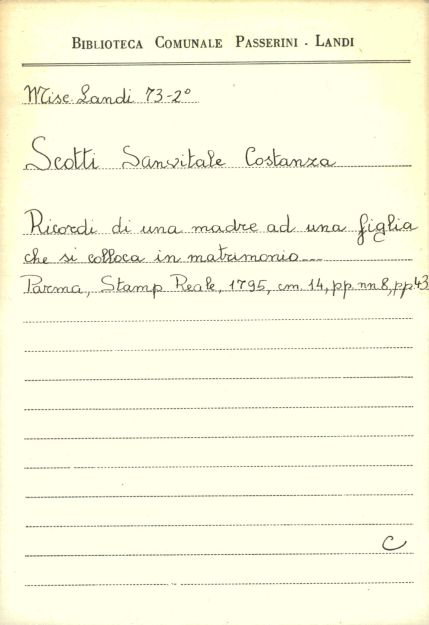 BIBLIOTECA COMUNALE PASSERINI - LANDI
Misc. Landi 73-2°
Scotti Sanvitale Costanza
Ricordi di una madre ad una figlia
che si colloca in matrimonio...
Parma, Stamp. Reale, 1795, cm. 14, pp. nn 8, pp 43
C